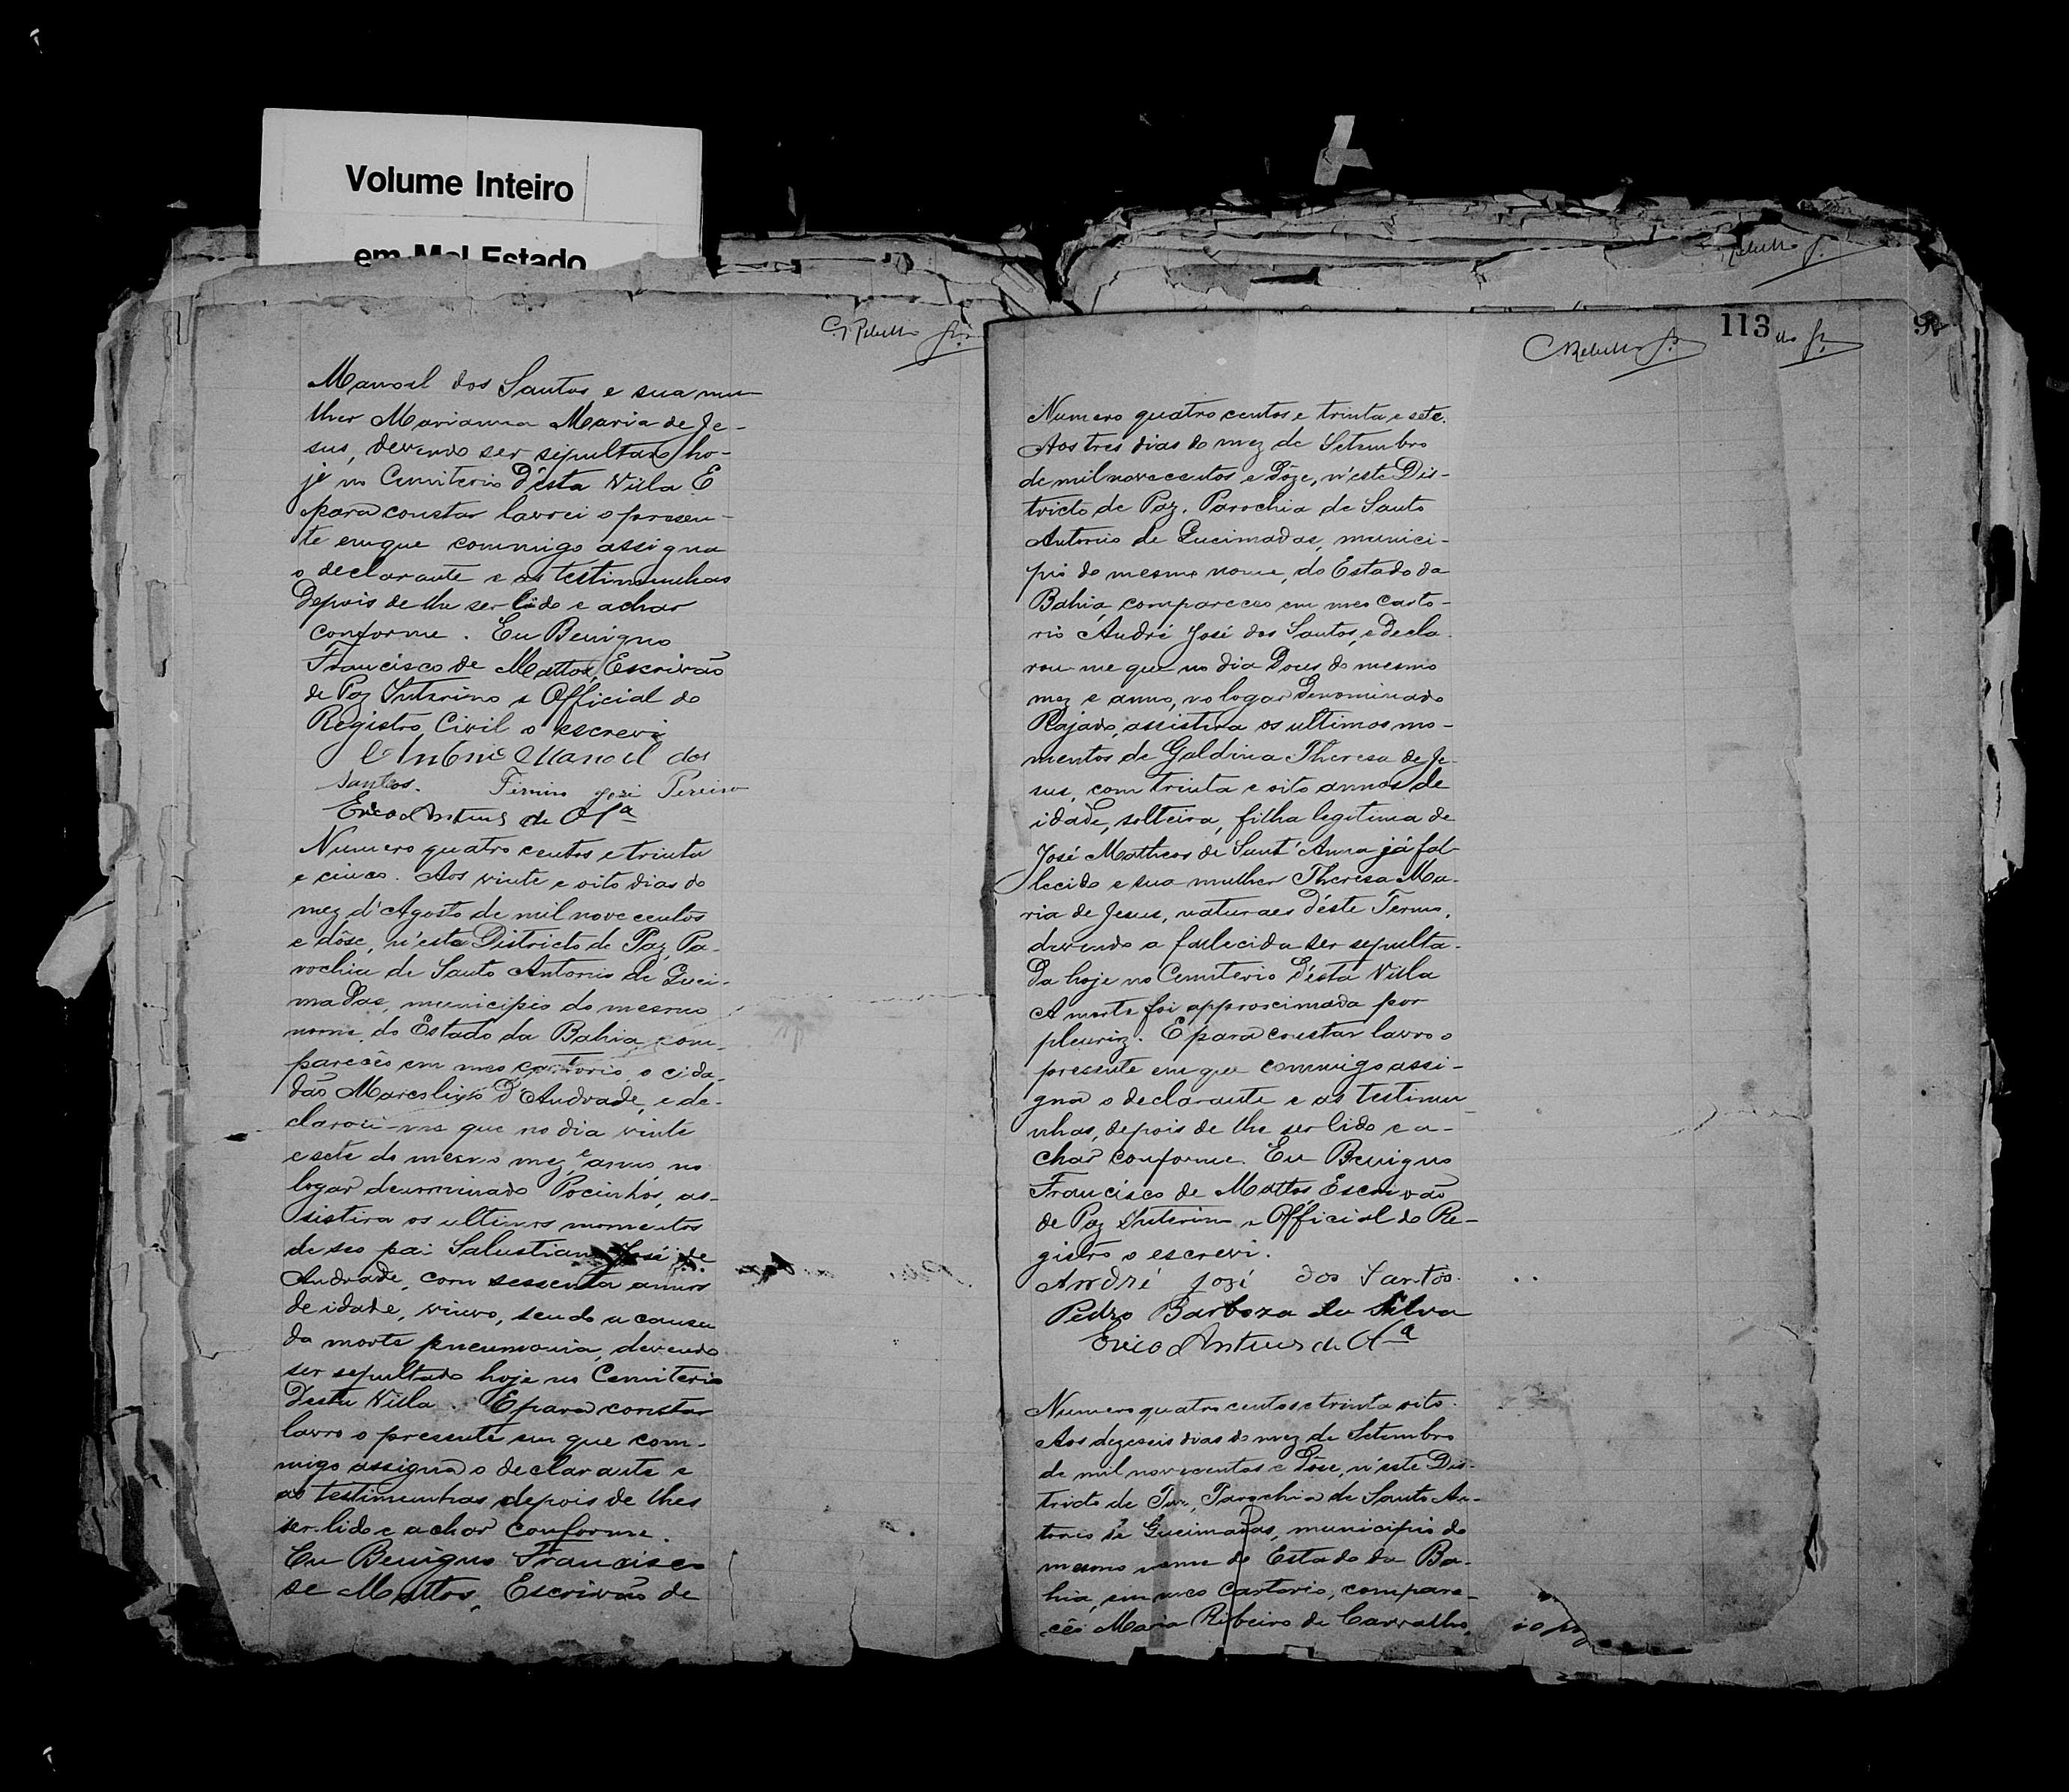 Volume Inteiro
em Mal Estado
Manoel dos Santos e sua mu
lher Marianna Maria de Je-
sus, devendo ser sepultado ho-
je no Cemiterio d'esta Villa E
para constar lavrei o presen-
te em que commigo assigna
o declarante e as testimunhas
depois de lhe ser lido e achar
conforme. Eu Benigno
Francisco de Mattos, Escrivão
de Paz Interino e Official do
Registro Civil o escrevi
Antonio Manoel dos
Santos. Firmino José Pereira
Erico Antunes de Alª
Numero quatro centos e trinta
e cinco. Aos vinte e oito dias do
mez d'Agosto de mil nove centos
e dôse, n'esta Districto de Paz, Pa-
rochia de Santo Antonio de Quei-
madas, municipio do mesmo
nome, do Estado da Bahia, com-
pareceo em meo cartorio, o cida-
dão Marcolino d'Andrade, e de-
clarou-me que no dia vinte
e sete do mesmo mez e anno, no
logar denominado Pocinhos, as-
sistira os ultimos momentos
de seo pai Salustiano José de
Andrade, com sessenta annos
de idade, viuvo, sendo a causa
da morte pneumonia, devendo
ser sepultado hoje no Cemiterio
desta Villa. E para constar
lavro o presente em que com-
migo assigna o declarante e
as testimunhas depois de lhes
ser lido e achar conforme.
Eu Benigno Francisco
de Mattos, Escrivão de
113
Numero quatro centos e trinta e sete.
Aos tres dias do mez de Setembro
de mil novecentos e dôze, n'este Dis-
tricto de Paz. Parochia de Santo
Antonio de Queimadas, munici-
pio do mesmo nome, do Estado da
Bahia, compareceo em meo Carto-
rio André José dos Santos, e decla-
rou-me que no dia dous do mesmo
mez e anno, no logar denominado
Rajado, assistira os ultimos mo-
mentos de Galdina Theresa de Je-
sus, com trinta e oito annos de
idade, solteira, filha legitima de
José Matheos de Sant'Anna já fal-
lecido e sua mulher Theresa Ma-
ria de Jesus, naturaes d'éste Termo,
devendo a fallecida ser sepulta-
da hoje no Cemiterio d'ésta Villa
A morte foi approximada por
pleuriz. E para constar lavro o
presente em que commigo assi-
gna o declarante e as testimu-
nhas, depois de lhe ser lido e a-
char conforme. Eu Benigno
Francisco de Mattos, Escrivão
de Paz Interino e Official do Re-
gistro o escrevi.
André José dos Santos.
Pedro Barboza da Silva
Erico Antunes de Alª
Numero quatro centos e trinta oito.
Aos dezeseis dias do mez de Setembro
de mil novecentos e dôse, n'este Dis-
tricto de Paz, Parochia de Santo An-
tonio de Queimadas, municipio do
mesmo nome do Estado da Ba-
hia, em meo Cartorio, compare-
ceo Maria Ribeiro de Carvalho,